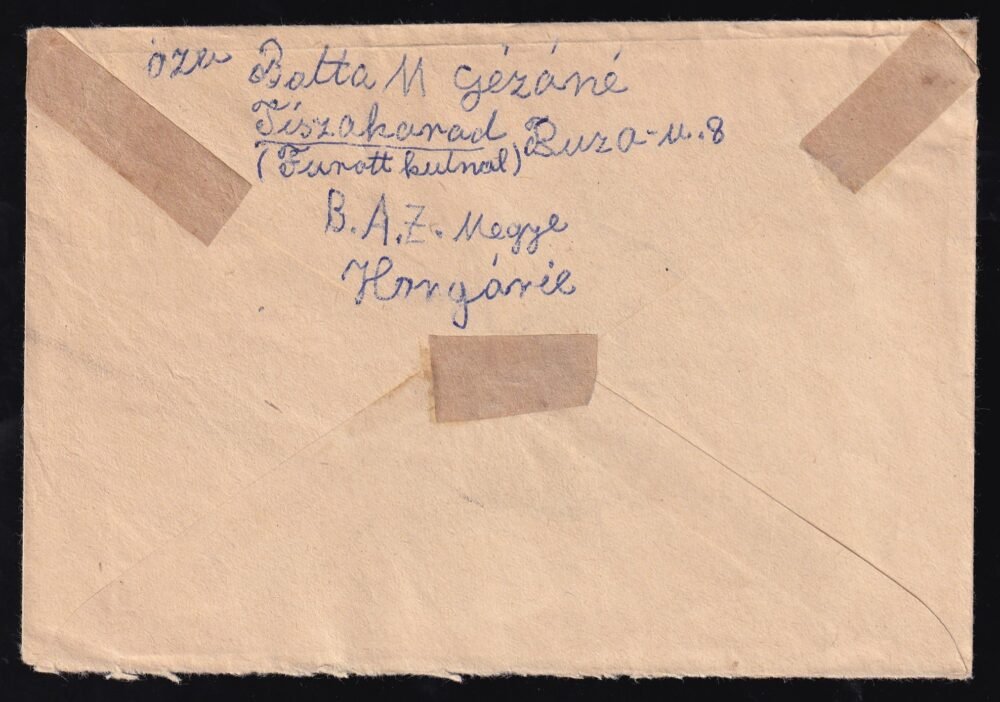 özv Batta M Gézáné
Tiszakarad Buza-u.8
(Furott kutnal)
B.A.Z. Megye
Hongárie